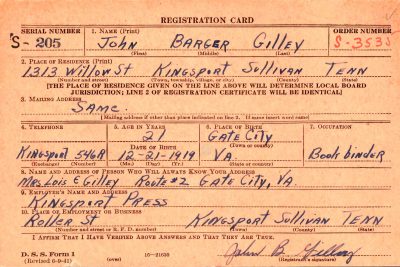 REGISTRATION CARD
SERIAL NUMBER 1. NAME (Print) ORDER NUMBER
S- 205 John Barger Gilley S-3535
(First) (Middle) (Last)
2. PLACE OF RESIDENCE (Print)
1313 Willow St Kingsport Sullivan Tenn
(Number and street) (Town, township, village, or city) (County) (State)
[THE PLACE OF RESIDENCE GIVEN ON THE LINE ABOVE WILL DETERMINE LOCAL BOARD
JURISDICTION; LINE 2 OF REGISTRATION CERTIFICATE WILL BE IDENTICAL]
3. MAILING ADDRESS
Same.
[Mailing address if other than place indicated on line 2. If same insert word same]
4. TELEPHONE 5. AGE IN YEARS 6. PLACE OF BIRTH 7. OCCUPATION
21 Gate City
DATE OF BIRTH (Town or county)
Kingsport 546R 12-21-1919 VA. Book binder
(Exchange) (Number) (Mo.) (Day) (Yr.) (State or country)
8. NAME AND ADDRESS OF PERSON WHO WILL ALWAYS KNOW YOUR ADDRESS
Mrs Lois E Gilley Route #2 Gate City, Va.
9. EMPLOYER'S NAME AND ADDRESS
Kingsport Press
10. PLACE OF EMPLOYMENT OR BUSINESS
Roller St Kingsport Sullivan Tenn
(Number and street or R. F. D. number) (Town) (County) (State)
I AFFIRM THAT I HAVE VERIFIED ABOVE ANSWERS AND THAT THEY ARE TRUE.
D. S. S. Form 1 (over) 16-21630 John B Gilley
(Revised 6-9-41)